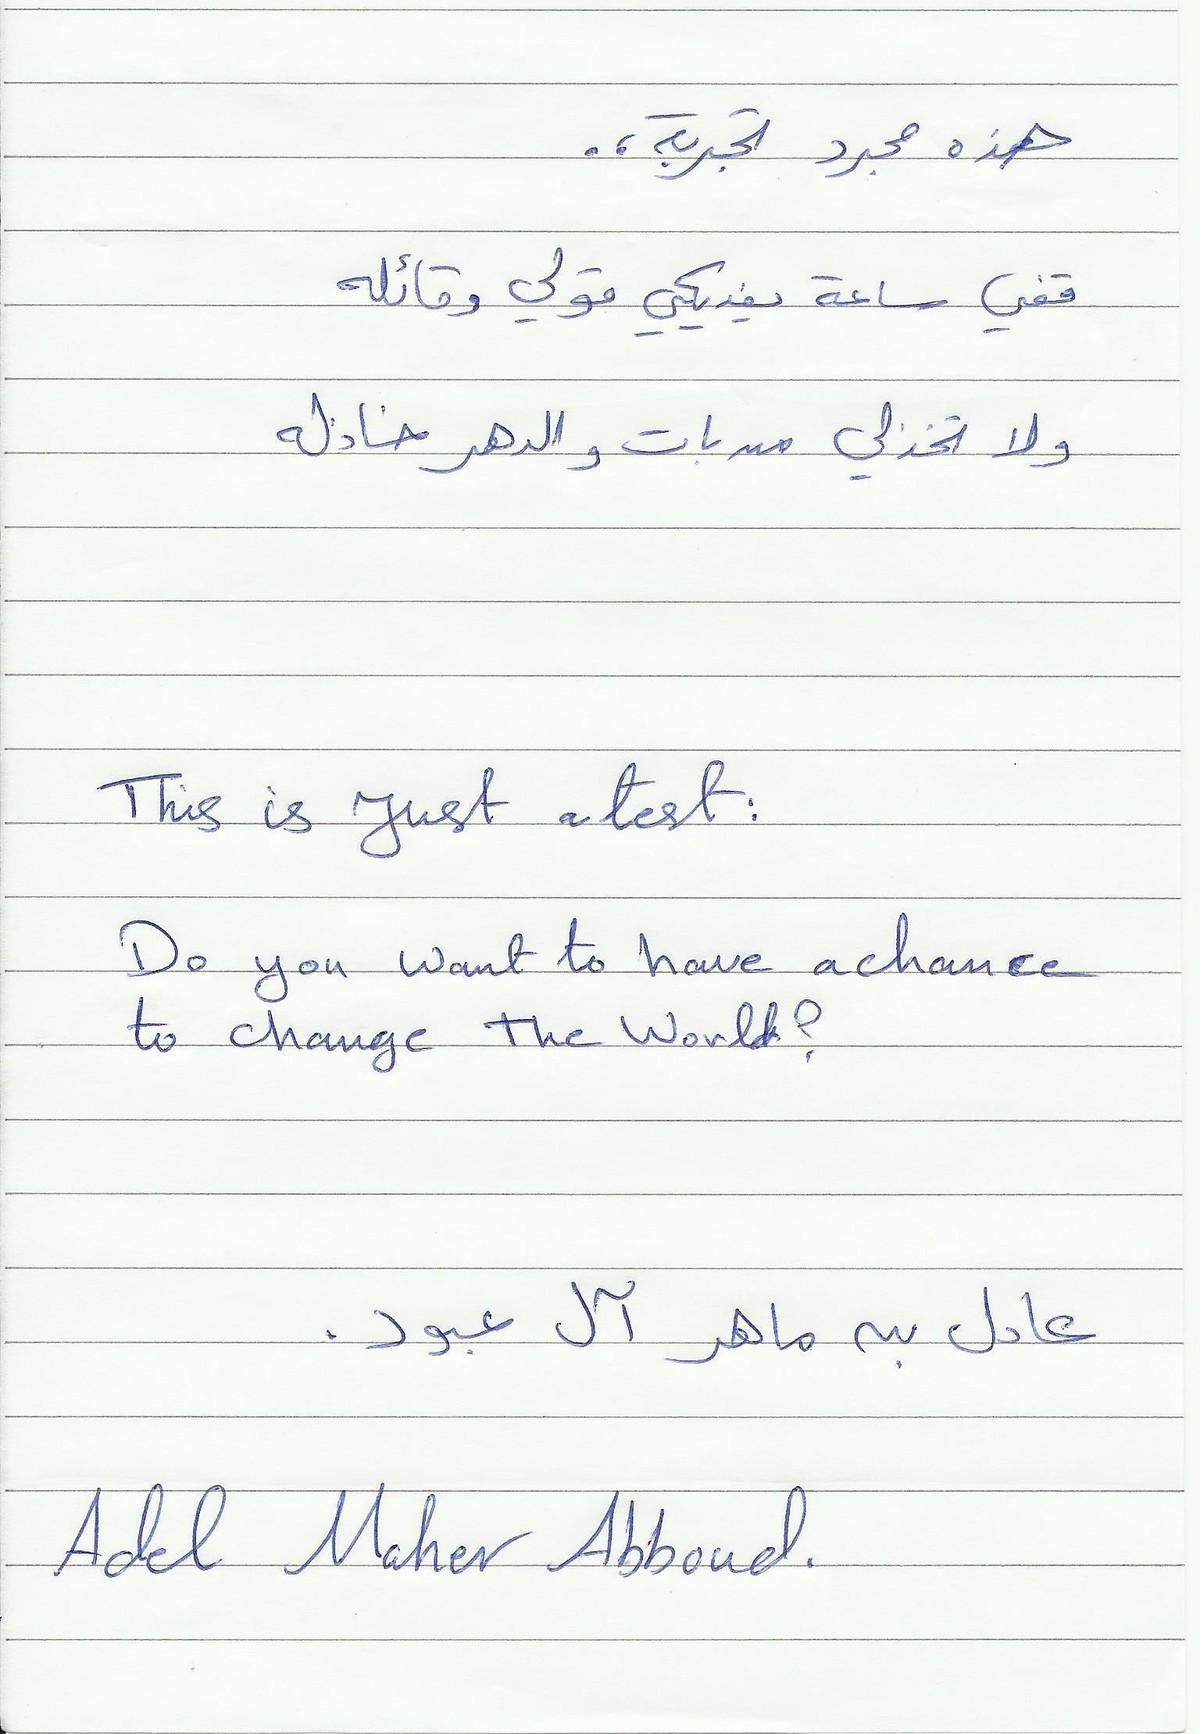 هذه مجرد تجربة،..
قفي ساعة يفديكي قولي وقائله
ولا تخذلي من بات والدهر خاذله
This is Just a test:
Do you want to have a chance
to change the World?
عادل بن ماهر آل عبود.
Adel Maher Abboud.